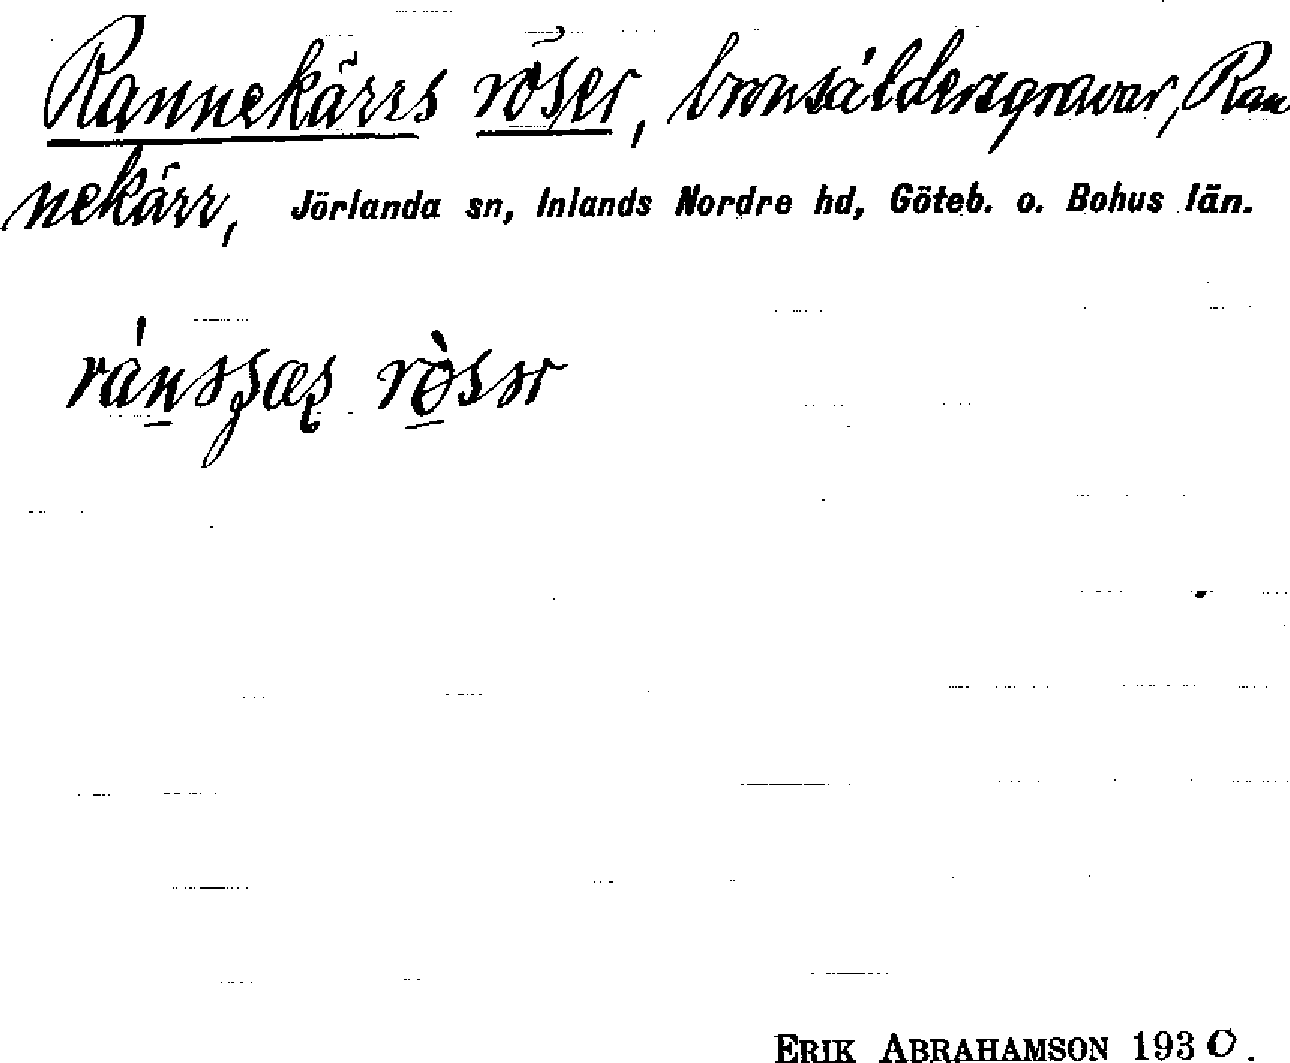 Rannekärrs röser, bronsåldersgravar, Ran
nekärr, Jörlanda sn, Inlands Nordre hd, Göteb. o. Bohus län.
ERIK ABRAHAMSON 1930.